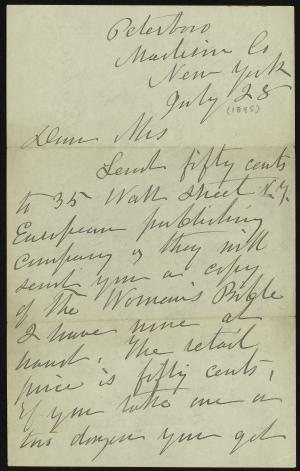 Peterboro
Madison Co
New York
July 28
(1895)
Dear Mrs
Send fifty cents
to 35 Wall street N.Y.
European publishing
company & they will
send you a copy
of the Woman's Bible
I have none at
hand. The retail
price is fifty cents,
if you take one or
two dozen you get